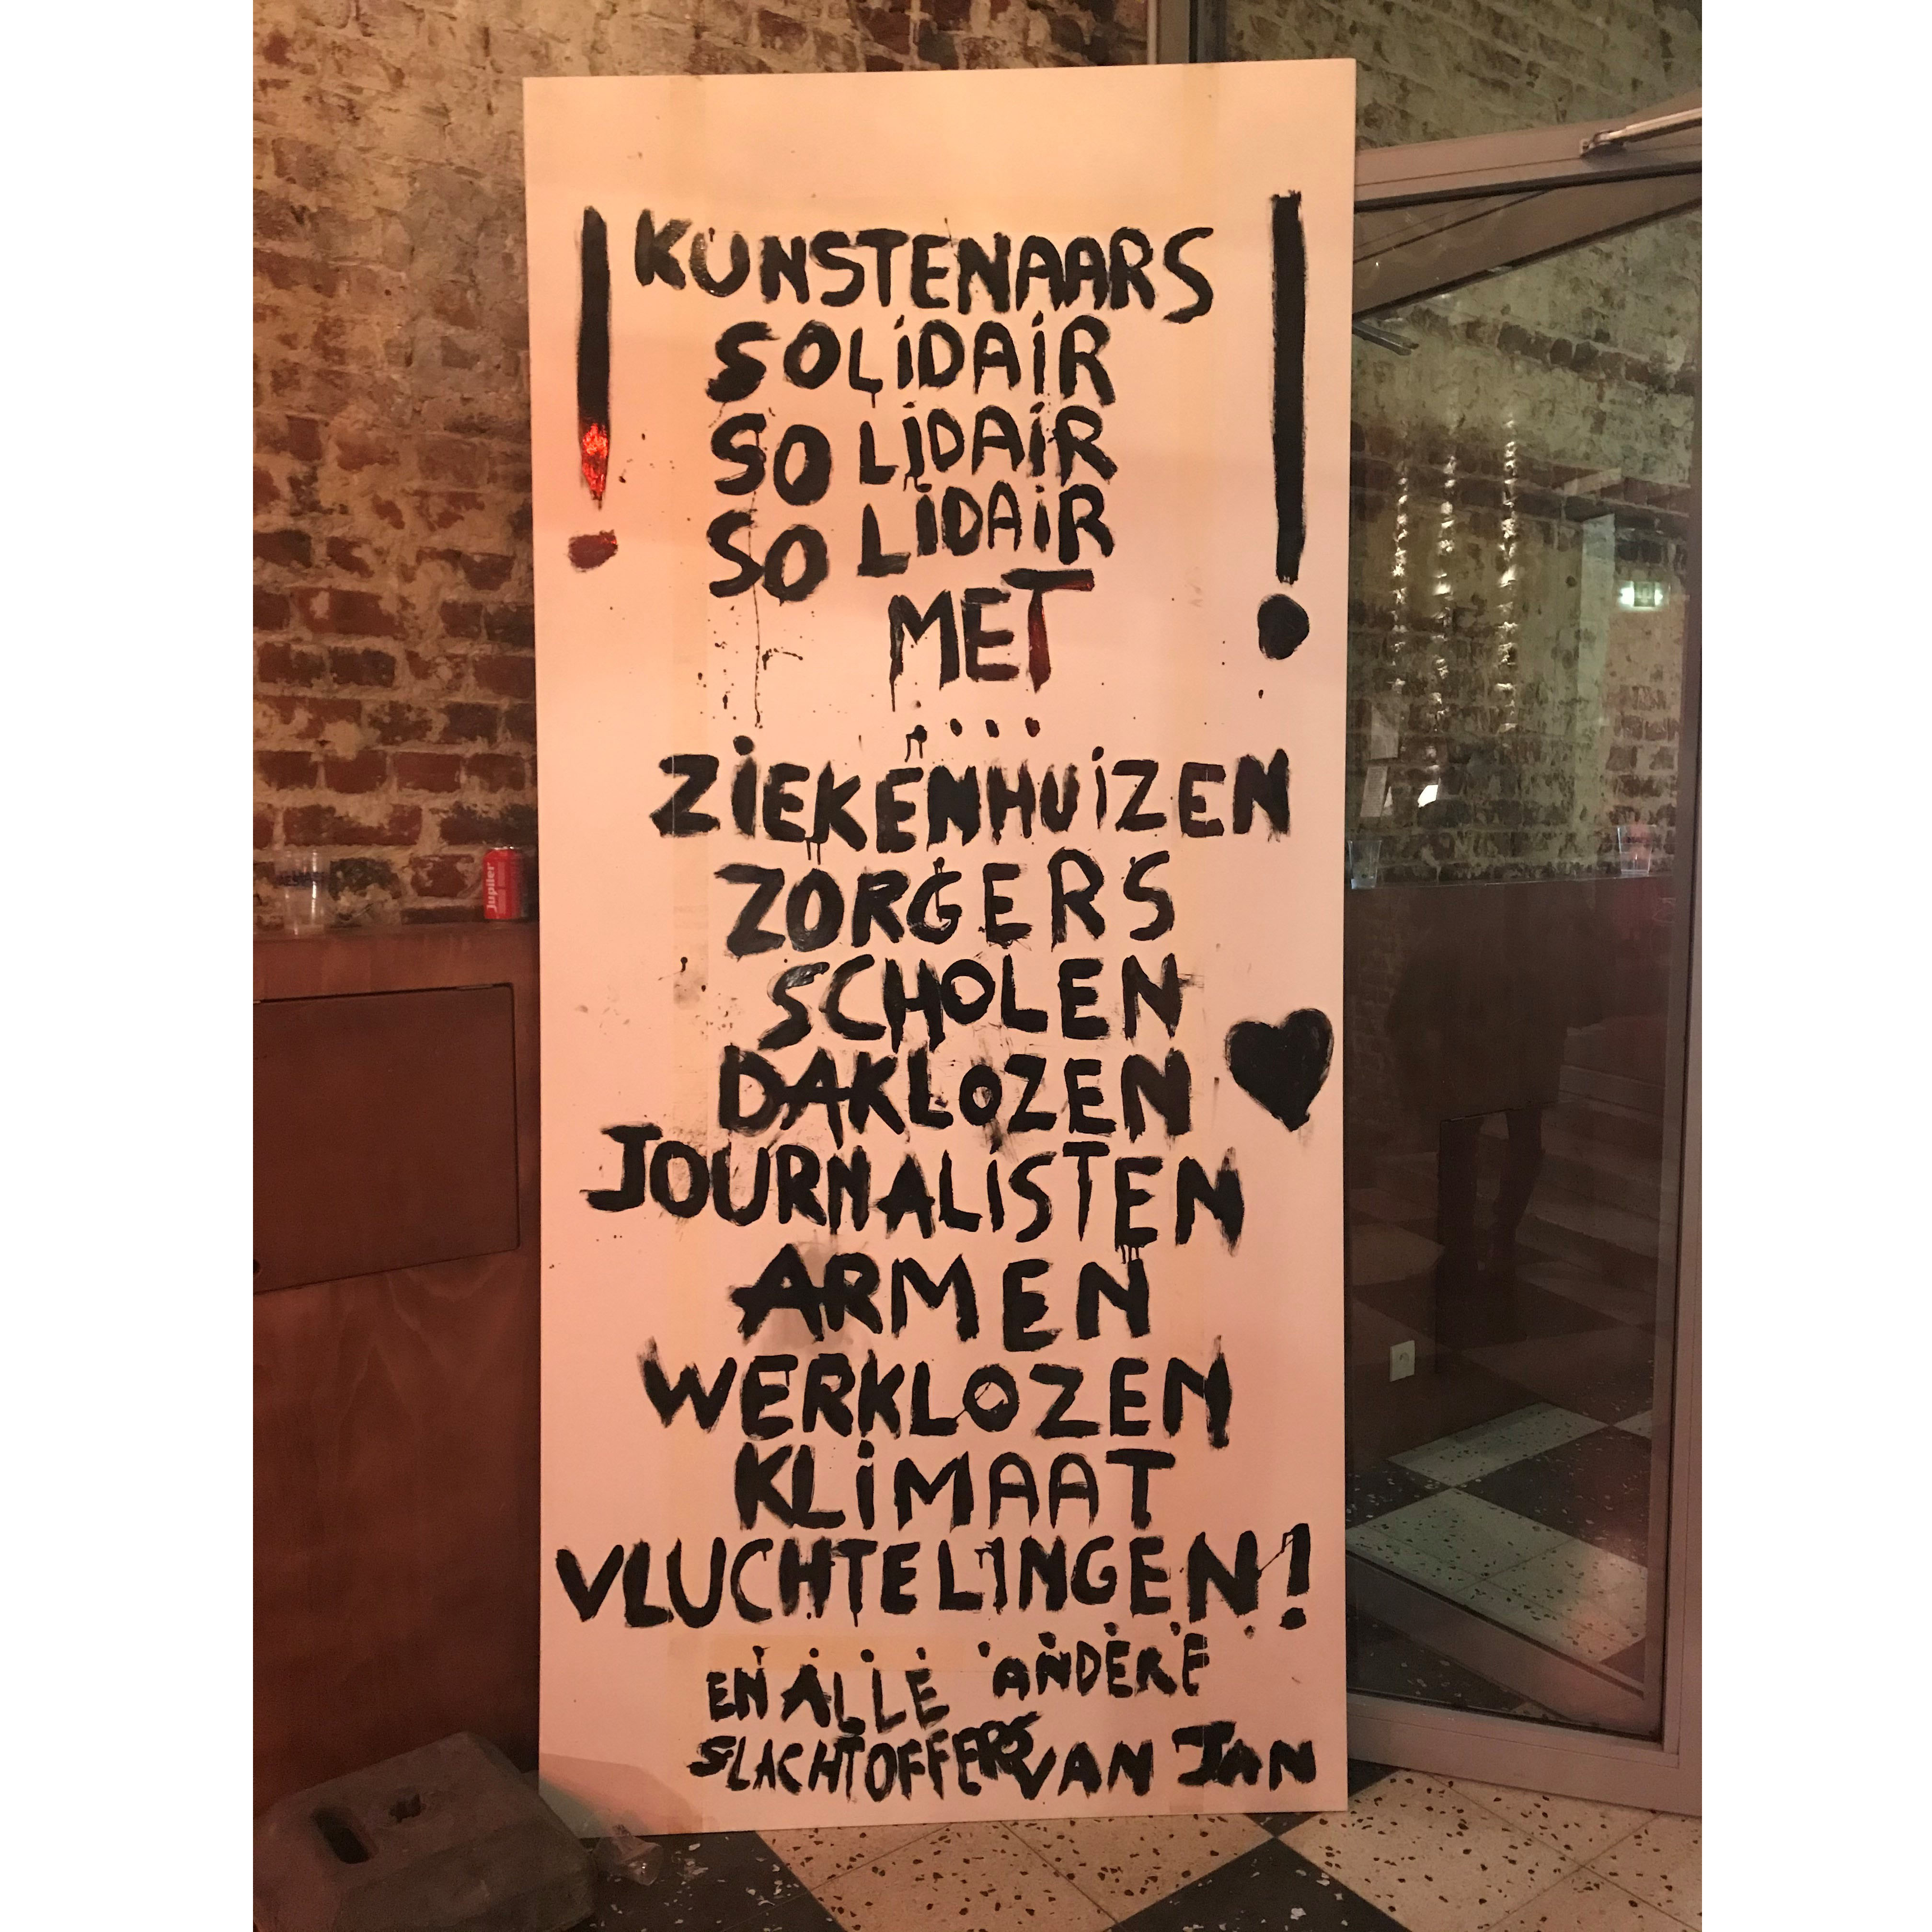 ! KUNSTENAARS !
SOLiDAiR
SOLiDAiR
SOLiDAiR
MET
....
ZiEKENHUiZEN
ZORGERS
SCHOLEN
DAKLOZEN
JOURNALiSTEN
ARMEN
WERKLOZEN
KLiMAAT
VLUCHTELINGEN!
EN ALLE ANDERE
SLACHTOFFERS VAN JAN
Jupiler